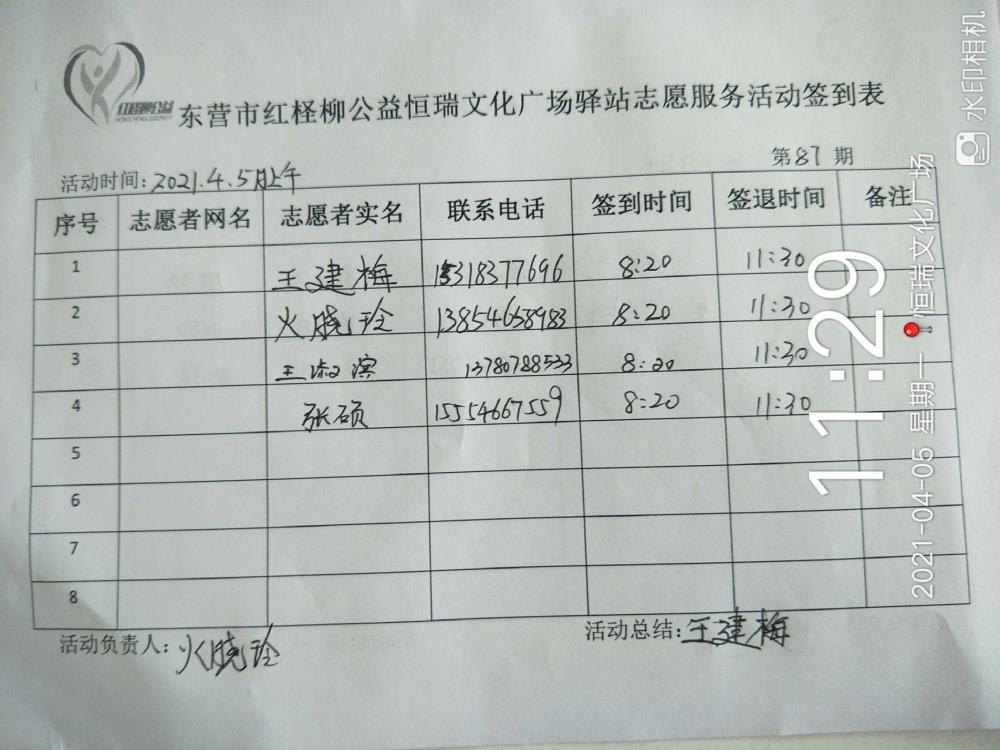 红柽柳公益
东营市红柽柳公益恒瑞文化广场驿站志愿服务活动签到表
活动时间:2021.4.5日上午
第87期
序号 志愿者网名 志愿者实名 联系电话 签到时间 签退时间 备注
1 王建梅 15318377696 8:20 11:30
2 火晓玲 13854658983 8:20 11:30
3 王淑滨 13780788533 8:20 11:30
4 张硕 15554667559 8:20 11:30
5
6
7
8
活动负责人:火晓玲
活动总结:王建梅
11:29
2021-04-05 星期一 恒瑞文化广场
水印相机